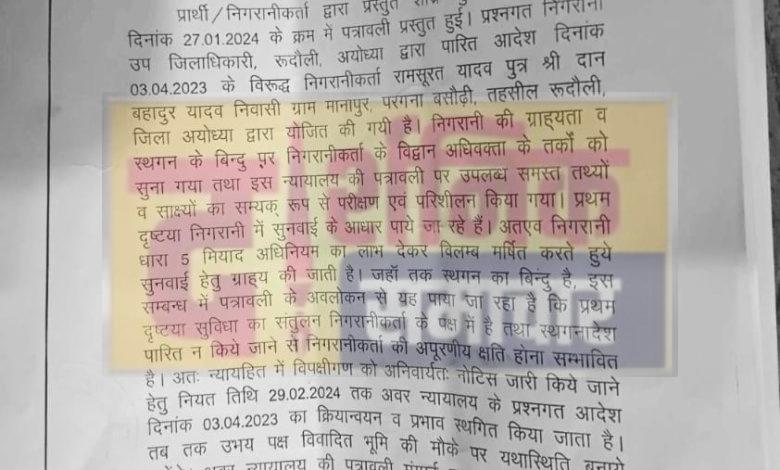 प्रार्थी/निगरानीकर्ता द्वारा प्रस्तुत
दिनांक 27.01.2024 के क्रम में पत्रावली प्रस्तुत हुई। प्रश्नगत निगरानी
उप जिलाधिकारी, रूदौली, अयोध्या द्वारा पारित आदेश दिनांक
03.04.2023 के विरूद्ध निगरानीकर्ता रामसूरत यादव पुत्र श्री दान
बहादुर यादव निवासी ग्राम मानापुर, परगना बसौढ़ी, तहसील रूदौली,
जिला अयोध्या द्वारा योजित की गयी है। निगरानी की ग्राह्यता व
स्थगन के बिन्दु पर निगरानीकर्ता के विद्वान अधिवक्ता के तर्को को
सुना गया तथा इस न्यायालय की पत्रावली पर उपलब्ध समस्त तथ्यों
व साक्ष्यों का सम्यक् रूप से परीक्षण एवं परिशीलन किया गया। प्रथम
दृष्टया निगरानी में सुनवाई के आधार पाये जा रहे हैं। अतएव निगरानी
धारा 5 मियाद अधिनियम का लाभ देकर विलम्ब मर्षित करते हुये
सुनवाई हेतु ग्राह्य की जाती है। जहाँ तक स्थगन का बिन्दु है, इस
सम्बन्ध में पत्रावली के अवलोकन से यह पाया जा रहा है कि प्रथम
दृष्टया सुविधा का संतुलन निगरानीकर्ता के पक्ष में है तथा स्थगनादेश
पारित न किये जाने से निगरानीकर्ता की अपूरणीय क्षति होना सम्भावित
है। अतः न्यायहित में विपक्षीगण को अनिवार्यतः नोटिस जारी किये जाने
हेतु नियत तिथि 29.02.2024 तक अवर न्यायालय के प्रश्नगत आदेश
दिनांक 03.04.2023 का क्रियान्वयन व प्रभाव स्थगित किया जाता है।
तब तक उभय पक्ष विवादित भूमि की मौके पर यथास्थिति बनाये
अवर न्यायालय की पत्रावली